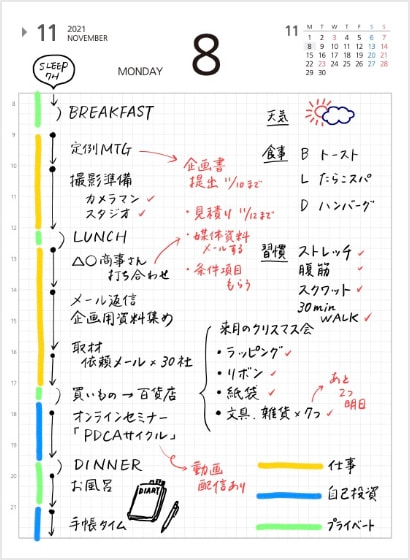 11 2021
NOVEMBER
MONDAY
8
11
M T W T F S S
1 2 3 4 5 6 7
8 9 10 11 12 13 14
15 16 17 18 19 20 21
22 23 24 25 26 27 28
29 30
SLEEP
7H
8
BREAKFAST
天気
9
定例MTG
企画書
提出 11/10まで
食事 B トースト
L たらこスパ
D ハンバーグ
10
撮影準備
カメラマン ✓
スタジオ ✓
11
・見積り 11/12まで
12
LUNCH
・媒体資料
メールする
13
△○商事さん
打ち合わせ
・条件項目
もらう
習慣 ストレッチ ✓
腹筋 ✓
スクワット ✓
30min
WALK ✓
14
メール返信
企画用資料集め
15
来月のクリスマス会
・ラッピング ✓
・リボン ✓
・紙袋 ✓
・文具、雑貨×7つ ✓
あと
2つ
明日
16
取材
依頼メール×30社
17
買いもの→百貨店
18
オンラインセミナー
「PDCAサイクル」
動画
配信あり
19
DINNER
20
お風呂
DIARY
21
手帳タイム
仕事
自己投資
プライベート